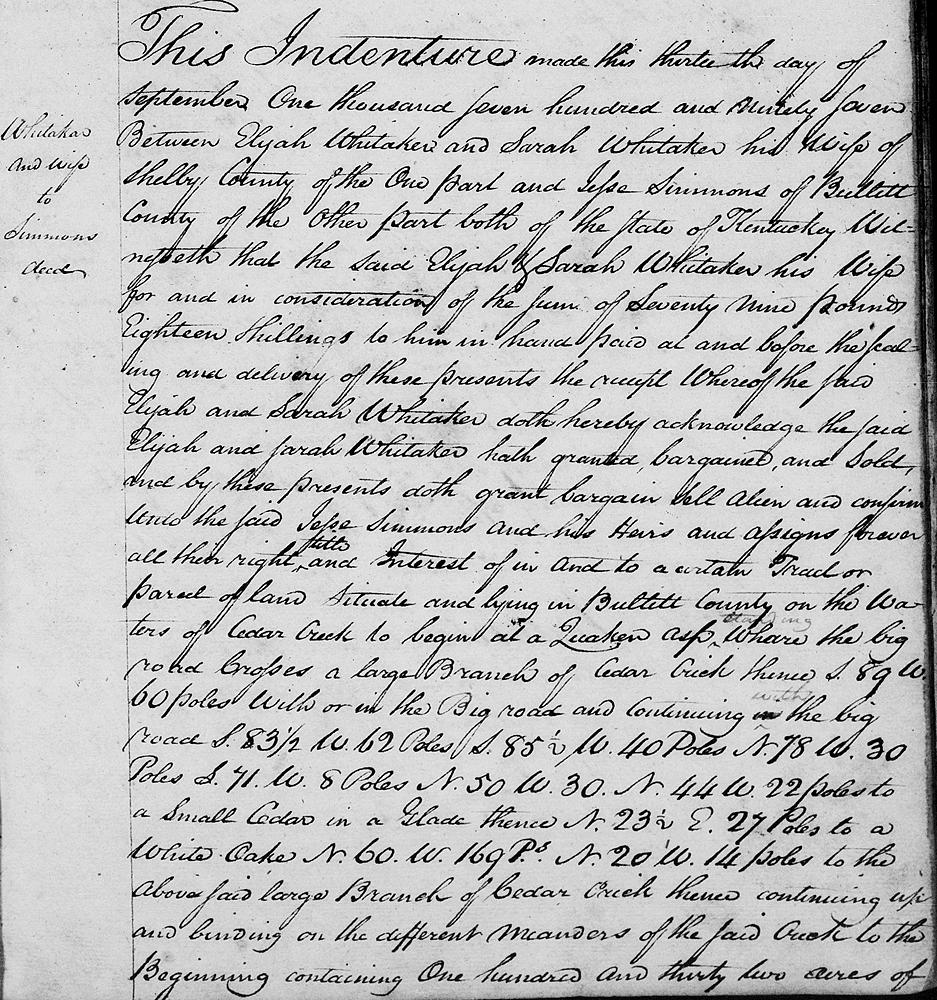 This Indenture made this thirtieth day of
September One thousand seven hundred and Ninety seven
Between Elijah Whitaker and Sarah Whitaker his Wife of
Shelby County of the One part and Jesse Simmons of Bullitt
County of the Other part both of the state of Kentucky Wit=
nesseth that the said Elijah & Sarah Whitaker his Wife
for and in consideration of the sum of Seventy nine pounds
Eighteen Shillings to him in hand paid at and before the seal=
ing and delivery of these presents the receipt Whereof the said
Elijah and Sarah Whitaker doth hereby acknowledge the said
Elijah and Sarah Whitaker hath granted, bargained, and Sold,
and by these presents doth grant bargain Sell Alien and confirm
Unto the said Jesse Simmons and his Heirs and assigns forever
all their right, title and Interest of in and to a certain Tract or
parcel of land Situate and lying in Bullitt County on the Wa-
ters of Cedar Creek to begin at a Quaken asp, standing Whare the big
road Crosses a large Branch of Cedar Crick thence S. 89 W.
60 poles With or in the Big road and Continuing with the big
road S. 83 1/2 W. 62 Poles S. 85 1/2 W. 40 Poles N. 78 W. 30
Poles S. 71. W. 8 Poles N. 50 W. 30. N. 44 W. 22 poles to
a Small Cedar in a Glade thence N. 23 1/2 E. 27 Poles to a
White Oake N. 60. W. 169 Ps. N. 20 W. 14 poles to the
above said large Branch of Cedar Crick thence continuing up
and binding on the different Meanders of the said Creek to the
Beginning containing One hundred and thirty two acres of
Whitaker
And Wife
to
Simmons
deed